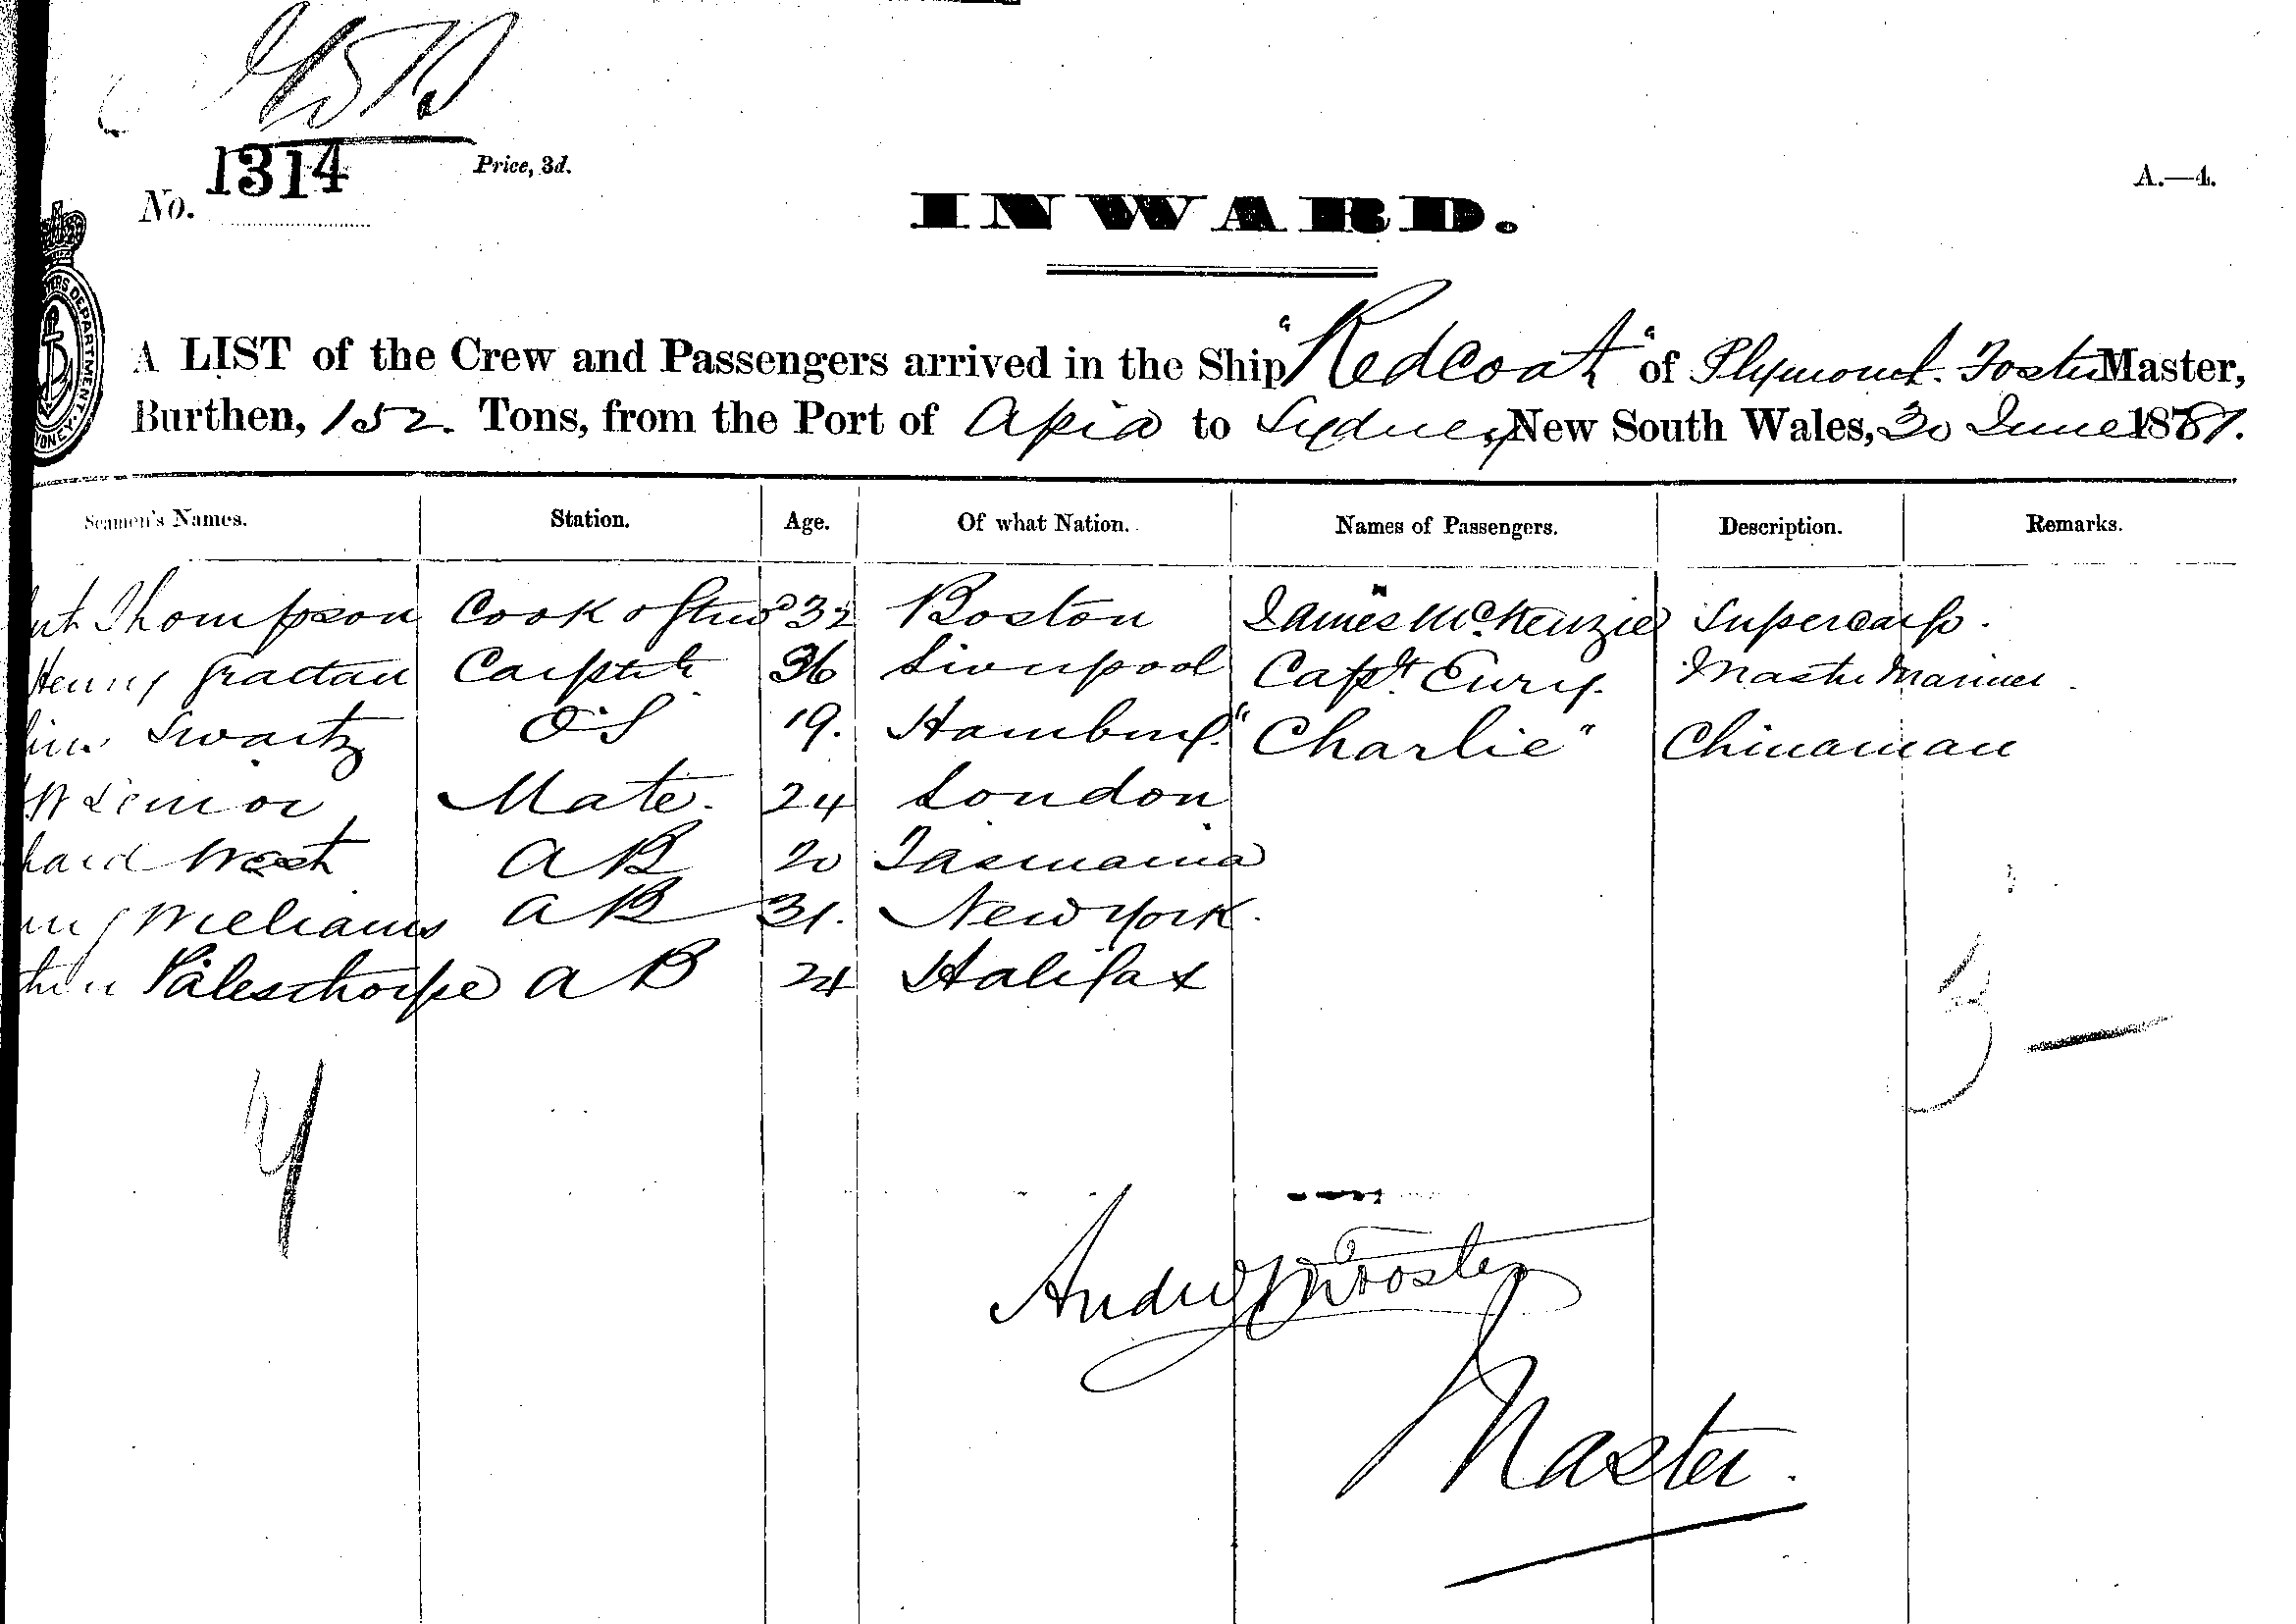 No. 1314
Price, 3d.
A.—4.
INWARD.
A LIST of the Crew and Passengers arrived in the Ship "Redcoat" of Plymouth. Foster Master,
Burthen, 152. Tons, from the Port of Apia to Sydney, New South Wales, 30 June 1881.
Seamen's Names. Station. Age. Of what Nation. Names of Passengers. Description. Remarks.
Thompson Cook & Stewd 32 Boston James McKenzie Supercargo.
Henry Grattan Carpntr 36 Liverpool Capt Eury. Master Mariner.
Swartz OS 19. Hamburg. "Charlie" Chinaman
Mate. 24 London
West AB 20 Tasmania
Williams AB 31. New York.
Palesthorpe AB 24 Halifax
3 —
Andrew Foster
Master.